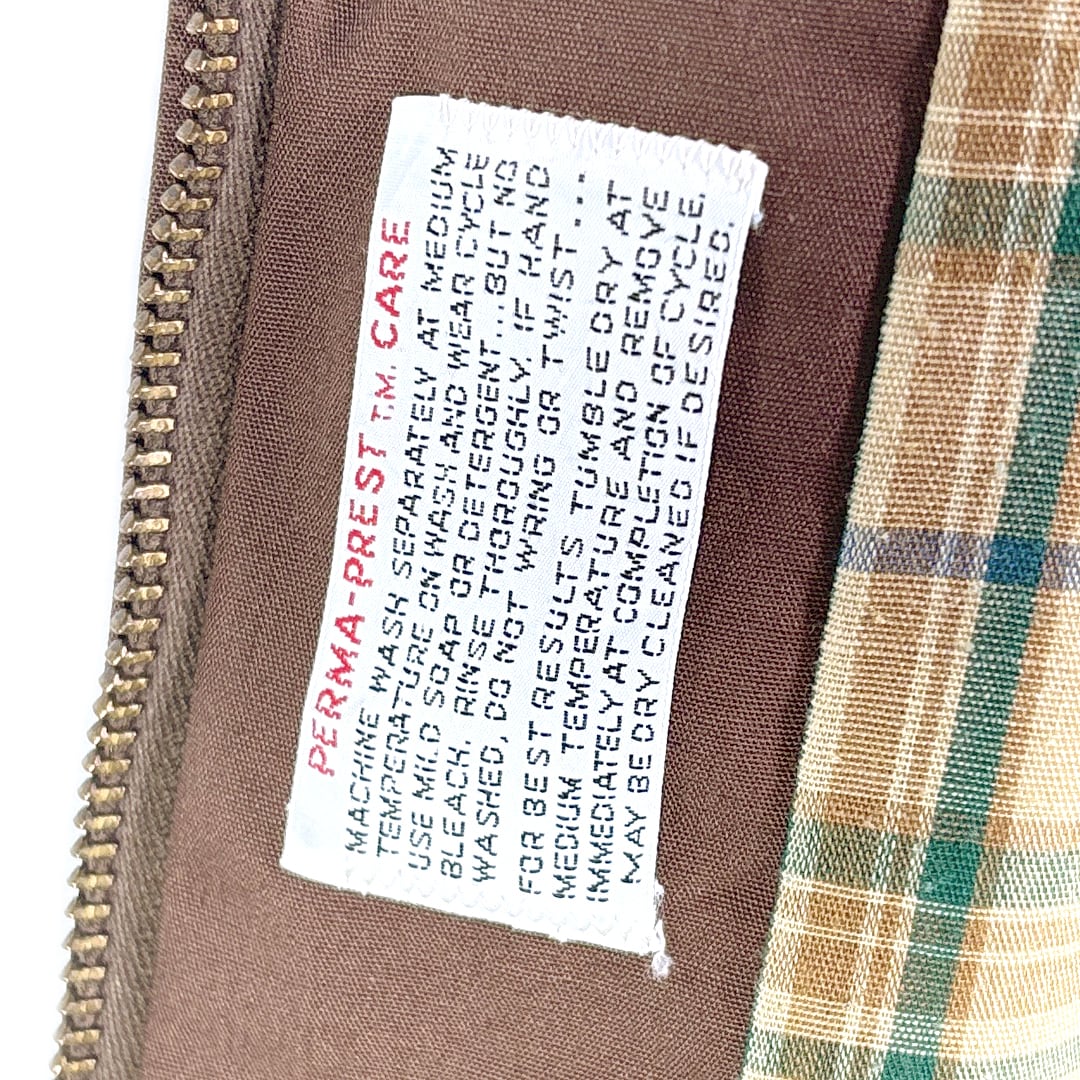 PERMA-PREST T.M. CARE
MACHINE WASH SEPARATELY AT MEDIUM
TEMPERATURE ON WASH AND WEAR CYCLE
USE MILD SOAP OR DETERGENT...BUT NO
BLEACH. RINSE THOROUGHLY. IF HAND
WASHED, DO NOT WRING OR TWIST...
FOR BEST RESULTS TUMBLE DRY AT
MEDIUM TEMPERATURE AND REMOVE
IMMEDIATELY AT COMPLETION OF CYCLE.
MAY BE DRY CLEANED IF DESIRED.